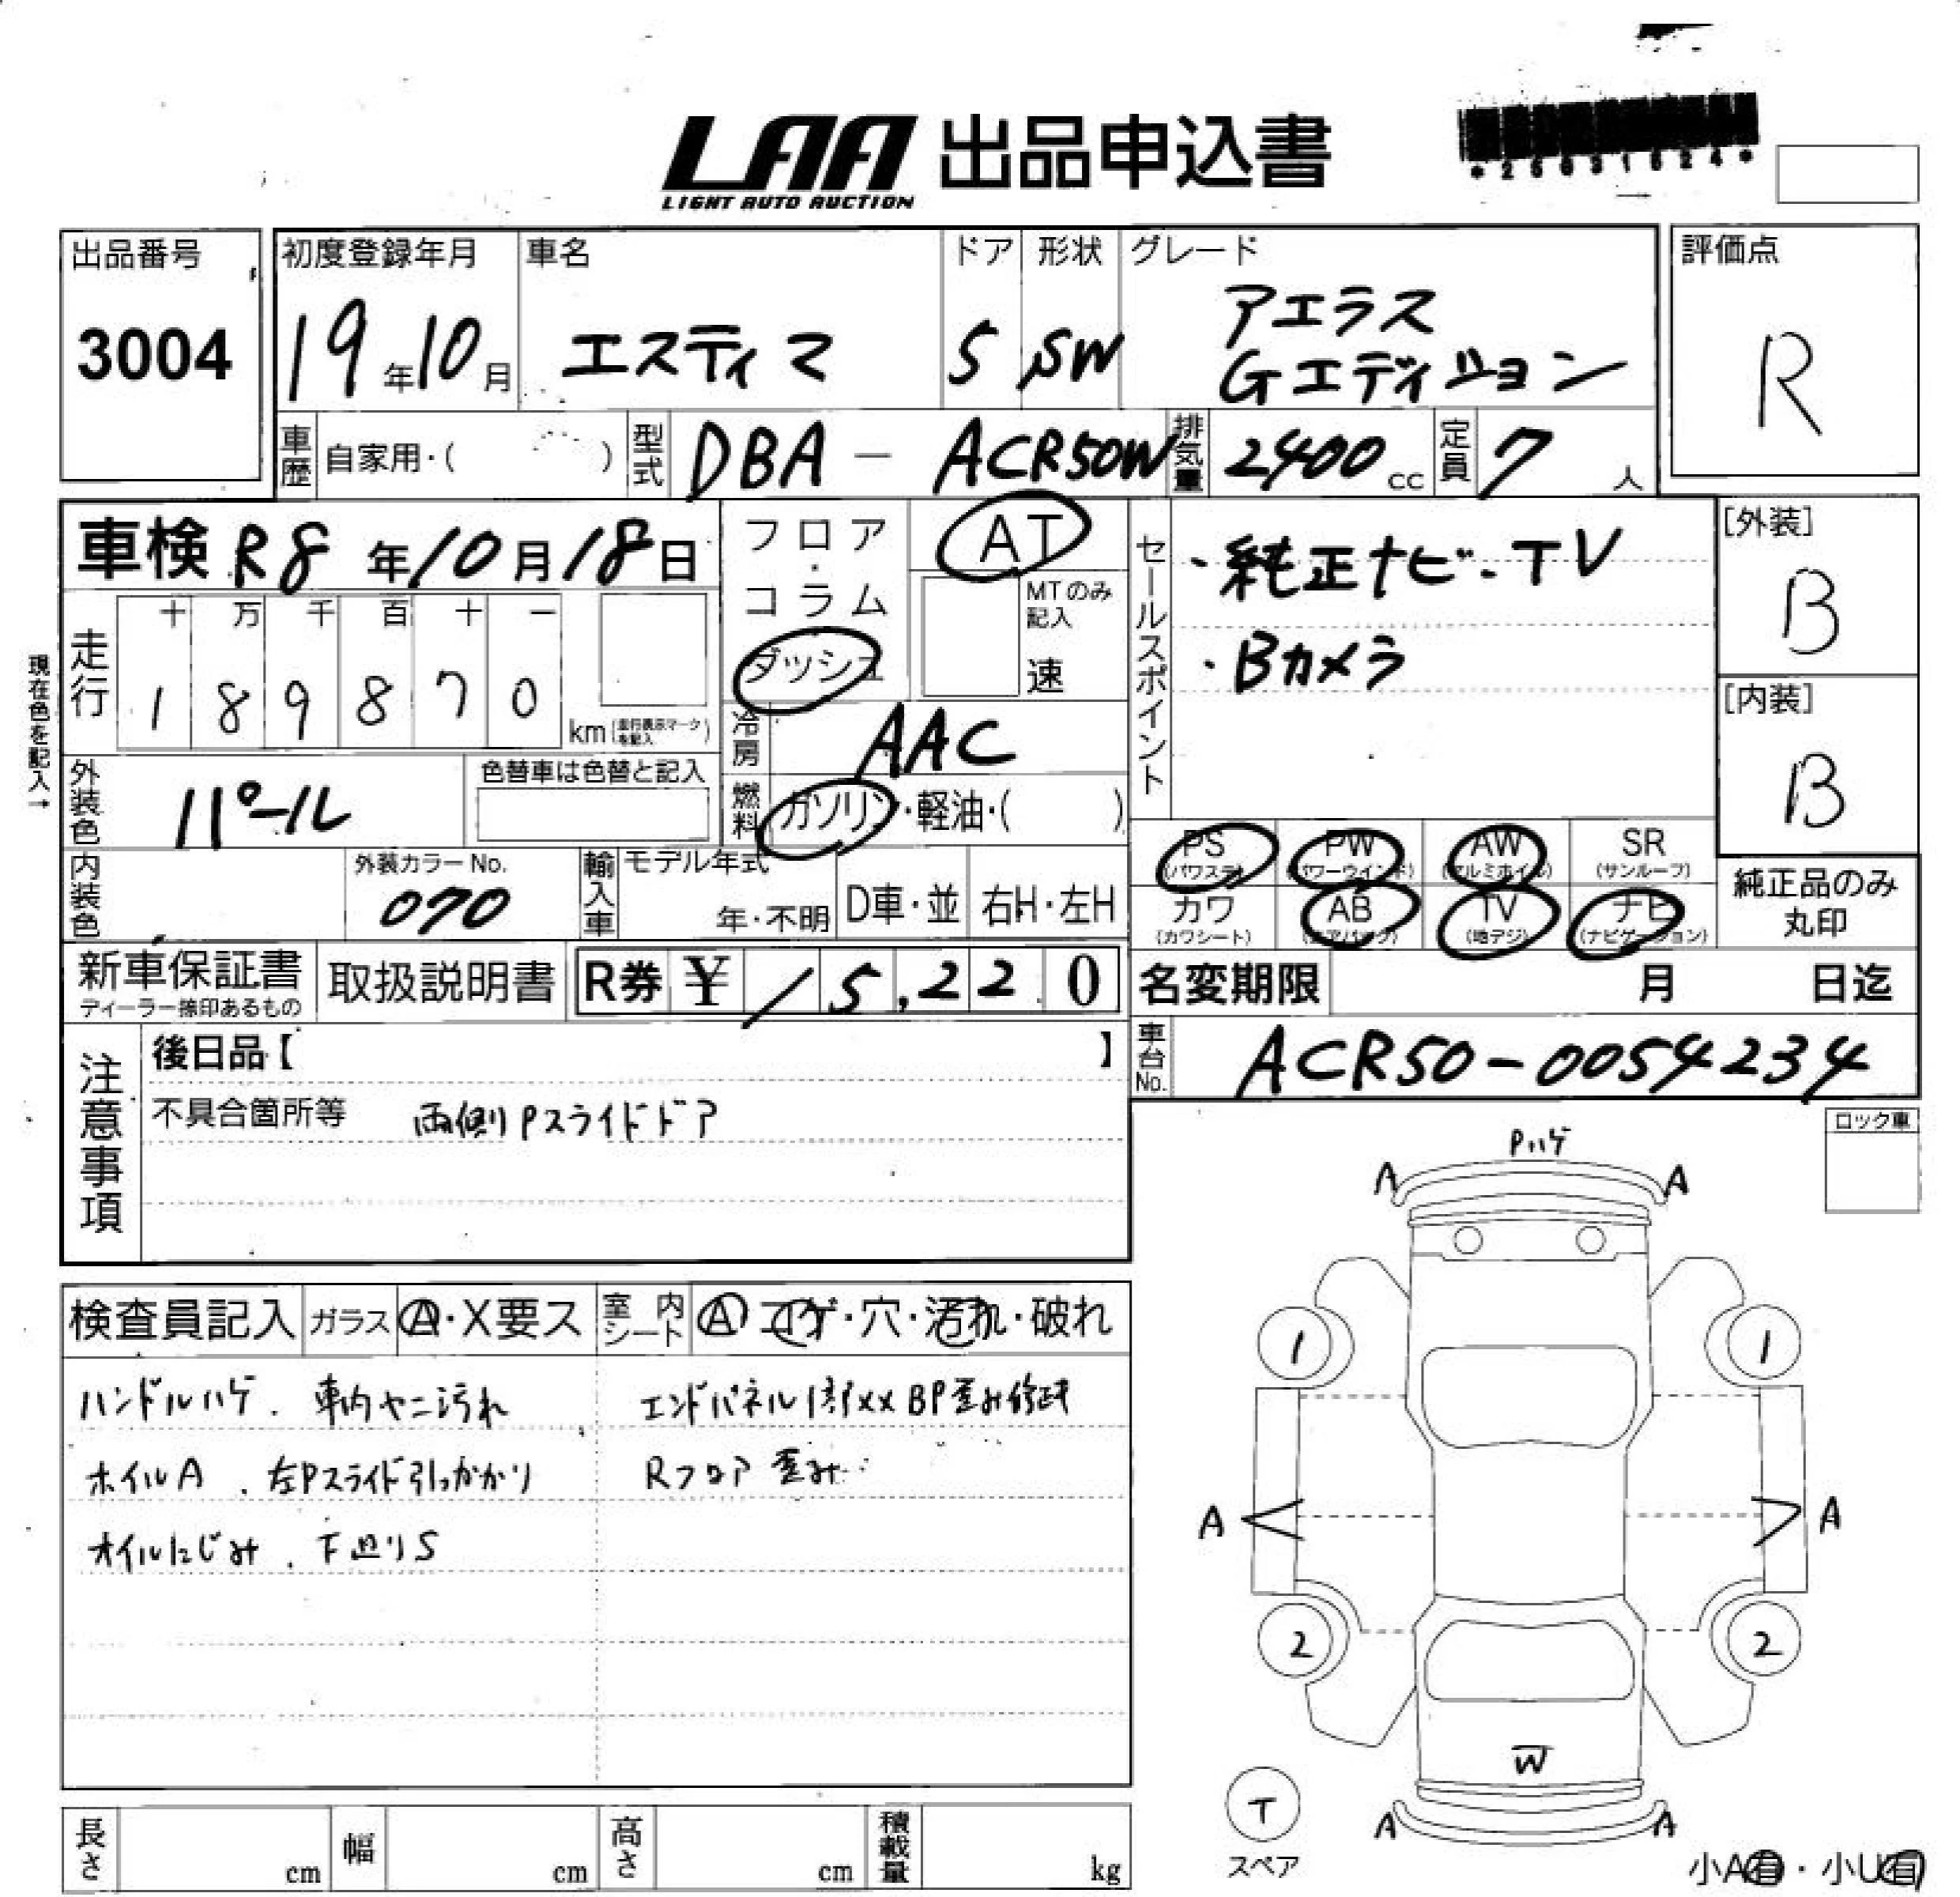 LAA 出品申込書
LIGHT AUTO AUCTION
出品番号
3004
初度登録年月
19年10月
車名
エスティマ
ドア
5
形状
SW
グレード
アエラス
Gエディション
評価点
R
車歴 自家用・( )
型式 DBA-ACR50W
排気量 2400cc
定員 7人
車検 R8年10月18日
フロア・コラム
ダッシュ
AT
MTのみ記入
速
セールスポイント
・純正ナビ・TV
・Bカメラ
[外装]
B
[内装]
B
現在色を記入→
走行
十 万 千 百 十 一
1 8 9 8 7 0
km(走行表示マークを記入)
冷房 AAC
燃料 ガソリン・軽油・( )
外装色 パール
色替車は色替と記入
内装色
外装カラーNo.
070
輸入車
モデル年式
年・不明
D車・並
右H・左H
PS (パワステ)
PW (パワーウインド)
AW (アルミホイル)
SR (サンルーフ)
カワ (カワシート)
AB (エアバック)
TV (地デジ)
ナビ (ナビゲーション)
純正品のみ
丸印
新車保証書
ディーラー捺印あるもの
取扱説明書
R券 ¥ 15,220
名変期限 月 日迄
車台No. ACR50-0054234
注意事項
後日品【 】
不具合箇所等 両側Pスライドドア
ロック車
検査員記入
ガラス A・X要ス
室内シート A コゲ・穴・汚れ・破れ
ハンドルハゲ. 車内ヤニ汚れ
エンドパネル部XX BP歪み修正
ホイルA . 左Pスライド引っかかり
Rフロア 歪み
オイルにじみ . 下廻りS
Pハゲ
A A
1 1
A A
2 2
W
A A
T
スペア
小A有・小U有
長さ cm
幅 cm
高さ cm
積載量 kg